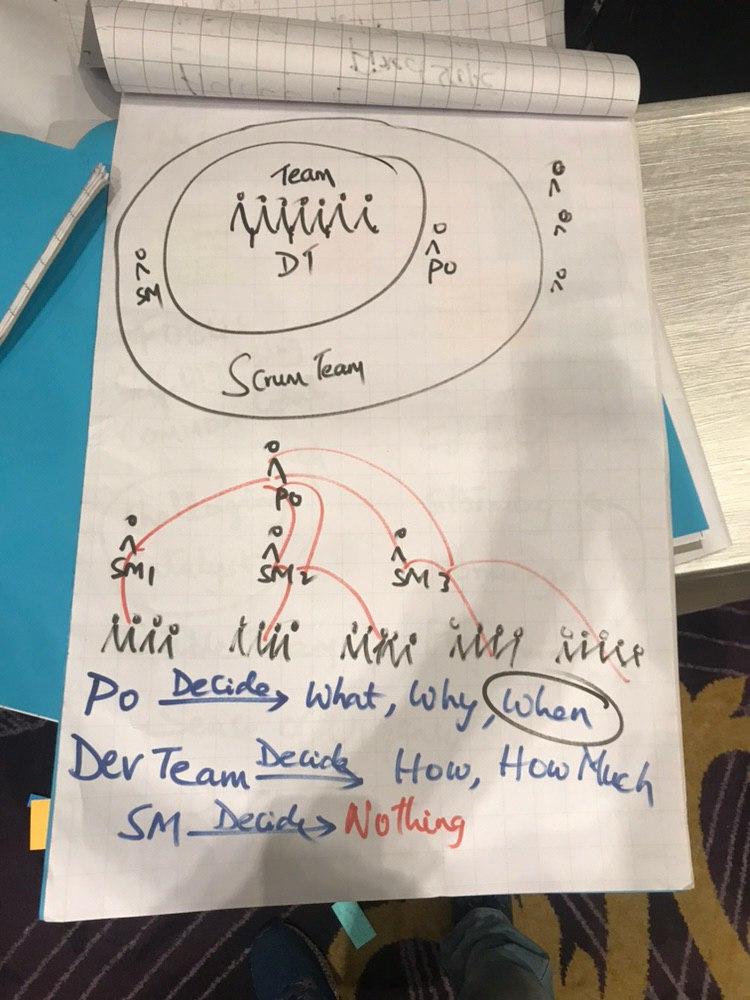 Team
DT
SM
PO
Scrum Team
PO
SM1
SM2
SM3
Po Decide What, Why, When
Dev Team Decide How, How Much
SM Decide Nothing